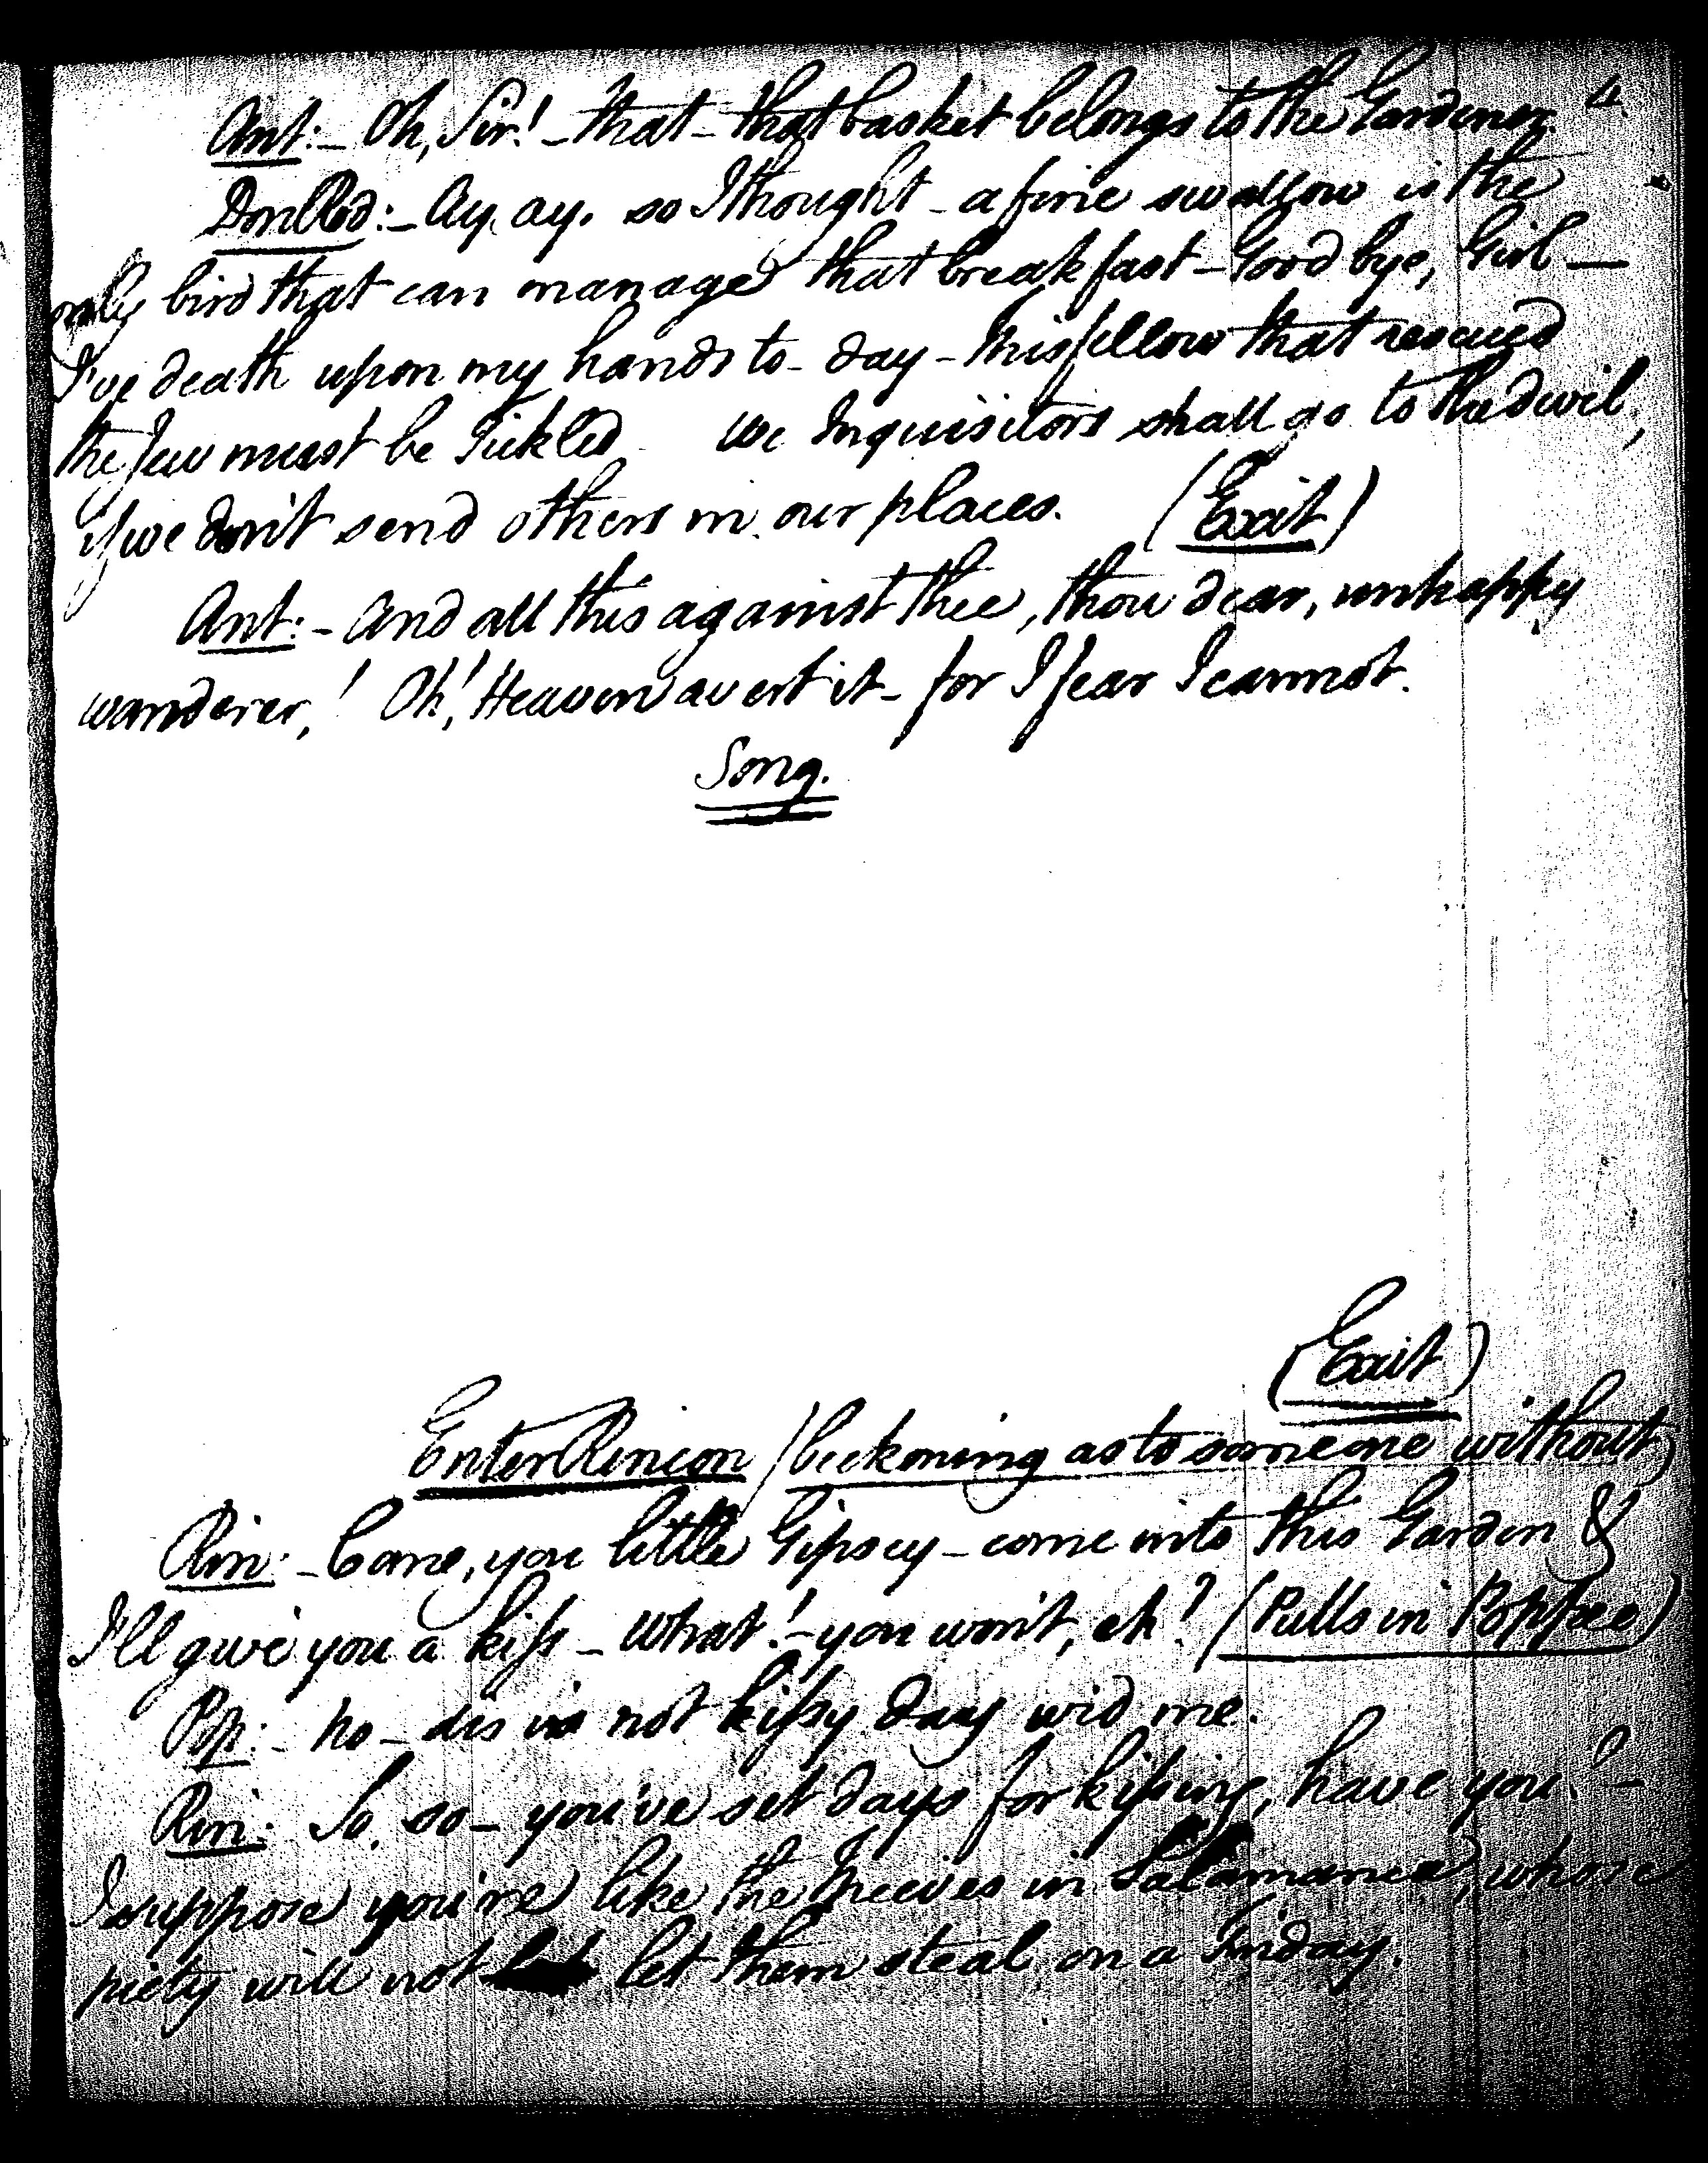 4.
Ant:- Oh, Sir! - that - that basket belongs to the Gardener.
Don Rod:- Ay, ay. so I thought - a fine swallow is the
only bird that can manage that breakfast - Good bye, Girl -
I've death upon my hands to-day - this fellow that rescued
the Jew must be Tickled - We Inquisitors shall go to the devil,
if we don't send others in our places. (Exit)
Ant:- And all this against thee, thou dear, unhappy
wanderer,! Oh! Heaven avert it - for I fear I cannot.
Song.
(Exit)
Enter Rincon (beckoning as to someone without)
Rin:- Come, you little Gipsey - come into this Garden &
I'll give you a kiss - What! - you won't, eh? (Pulls in Poppee)
Pop:- No - dis is not kissy day wid me.
Rin: So, so - you've set days for kissing, have you? -
I suppose you're like the Thieves in Salamanca, whose
piety will not let them steal on a Friday.